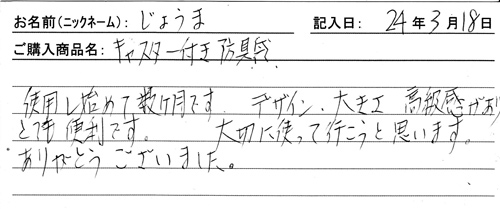 お名前（ニックネーム）: じょうま 記入日: 24年3月18日
ご購入商品名: キャスター付き防具袋
使用し始めて数ヶ月です。デザイン、大きさ 高級感があり
とても便利です。 大切に使って行こうと思います。
ありがとうございました。